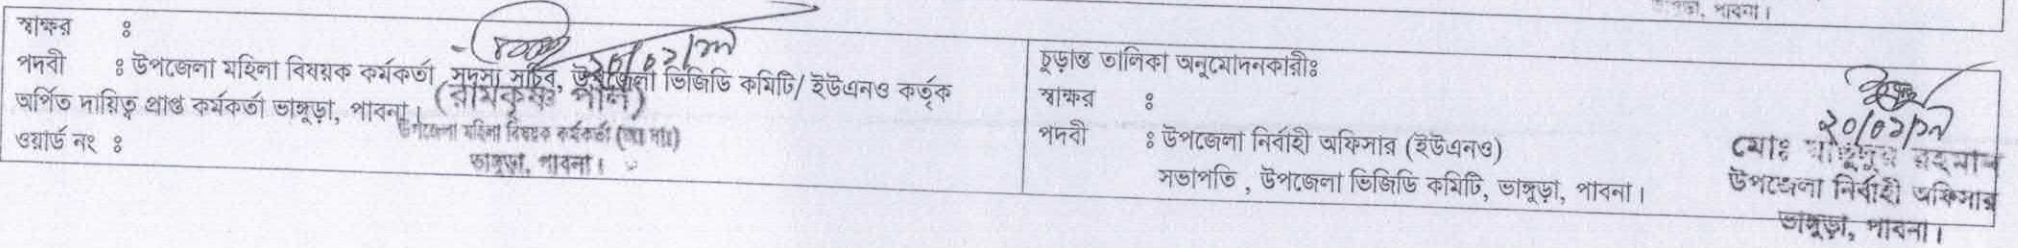 পাবনা।
স্বাক্ষর ঃ
পদবী ঃ উপজেলা মহিলা বিষয়ক কর্মকর্তা সদস্য সচিব, উপজেলা ভিজিডি কমিটি/ ইউএনও কর্তৃক
অর্পিত দায়িত্ব প্রাপ্ত কর্মকর্তা ভাঙ্গুড়া, পাবনা।
(রামকৃষ্ণ পাল)
উপজেলা মহিলা বিষয়ক কর্মকর্তা
ভাঙ্গুড়া, পাবনা।
ওয়ার্ড নং ঃ
চুড়ান্ত তালিকা অনুমোদনকারীঃ
স্বাক্ষর ঃ
পদবী ঃ উপজেলা নির্বাহী অফিসার (ইউএনও)
সভাপতি , উপজেলা ভিজিডি কমিটি, ভাঙ্গুড়া, পাবনা।
মোঃ রহমান
উপজেলা নির্বাহী অফিসার
ভাঙ্গুড়া, পাবনা।